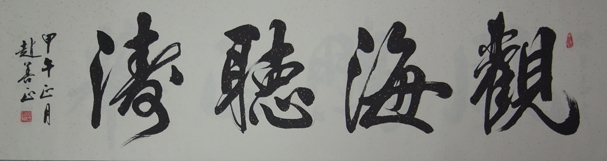 觀海聽濤
甲午正月
赵善正